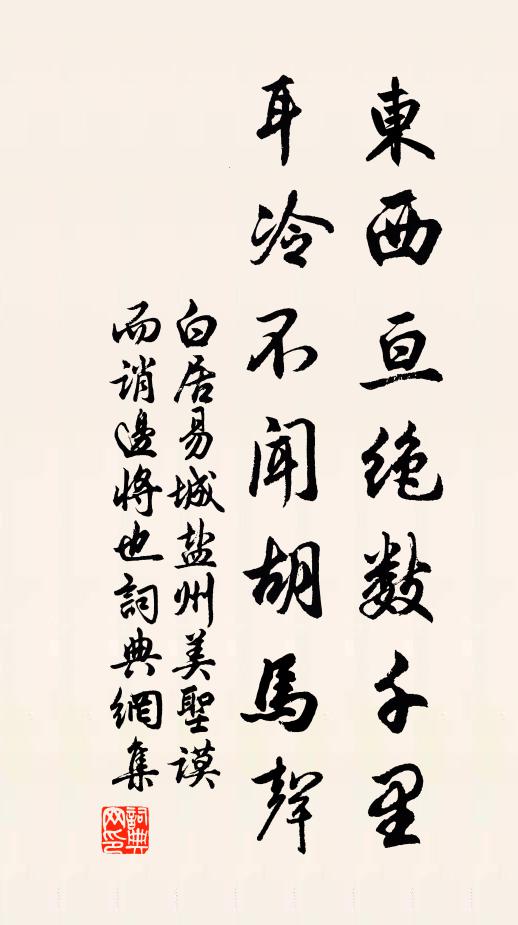 東西亘絶数千里
耳冷不聞胡馬聲
白居易城盐州美聖謨
而誚邊將也詞典網集
詞典网印